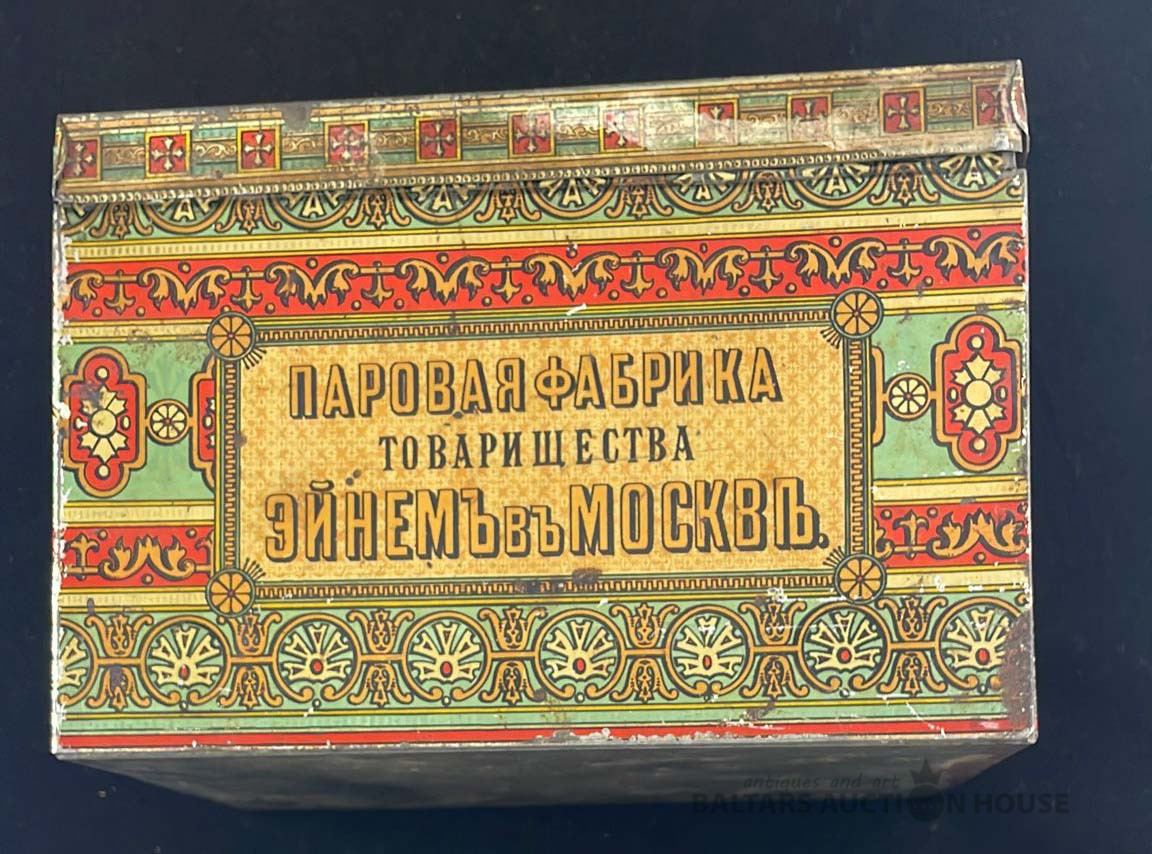 ПАРОВАЯ ФАБРИКА
ТОВАРИЩЕСТВА
ЭЙНЕМЪ ВЪ МОСКВѢ.
antiques and art
BALTARS AUCTION HOUSE